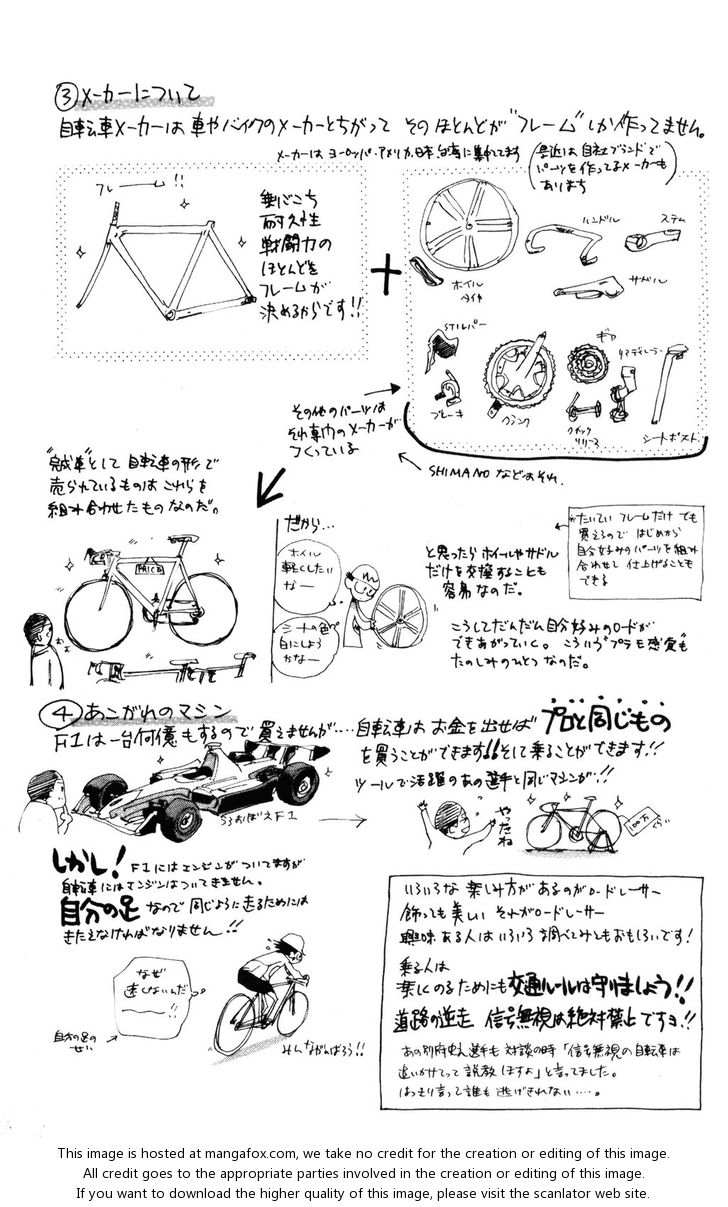 ③メーカーについて
自転車メーカーは 車やバイクのメーカーとちがって そのほとんどが"フレーム"しか作ってません。
メーカーは ヨーロッパ・アメリカ・日本・台湾に集中してます
(最近は自社ブランドで
パーツを作ってるメーカーも
あります)
フレーム!!
乗りごこち
耐久性
戦闘力の
ほとんどを
フレームが
決めるからです!!
+
ハンドル
ステム
ホイル
タイヤ
サドル
STIレバー
ギア
リアディレーラー
ブレーキ
クランク
クイック
リリース
シートポスト
その他のパーツは
それ専門のメーカーが
つくっている
SHIMANOなどはそれ.
"完成車"として 自転車の形で
売られているものは これらを
組み合わせたものなのだ。
PRICE
だから…
ホイル
軽くしたい
なー
シートの色
白にしよう
かなー
と思ったら ホイルやサドル
だけを交換することも
容易なのだ。
たいてい フレームだけ でも
買えるので はじめから
自分好みのパーツを組み
合わせし 仕上げることも
できる
こうしてだんだん自分好みのロードが
できあがっていく。こういう"プラモ感覚"も
たのしみのひとつなのだ。
④あこがれのマシン
F1は一台何億もするので買えませんが‥‥自転車は お金を出せば プロと同じもの
を買うことができます!!そして乗ることができます!!
ツールで活躍のあの選手と同じマシンが!!
うろおぼえF1
やったね
100万
くらい
しかし! F1にはエンジンがついてますが
自転車にはエンジンはついてきません。
自分の足 なので 同じように走るためには
きたえなければなりません!!
なぜ
速くないんだ
ーー!!
自分の足の
せい
みんながんばろう!!
いろいろな 楽しみ方が あるのがロードレーサー
飾っても美しい それがロードレーサー
興味ある人は いろいろ調べてみてもおもしろいです!
乗る人は
楽しくのるためにも交通ルールは守りましょう!!
道路の逆走 信号無視は絶対禁止ですョ!!
あの別府史之選手も 対談の時「信号無視の自転車は
追いかけてって 説教しますよ」と言ってました。
はっきり言って 誰も 逃げきれない‥‥。
This image is hosted at mangafox.com, we take no credit for the creation or editing of this image.
All credit goes to the appropriate parties involved in the creation or editing of this image.
If you want to download the higher quality of this image, please visit the scanlator web site.